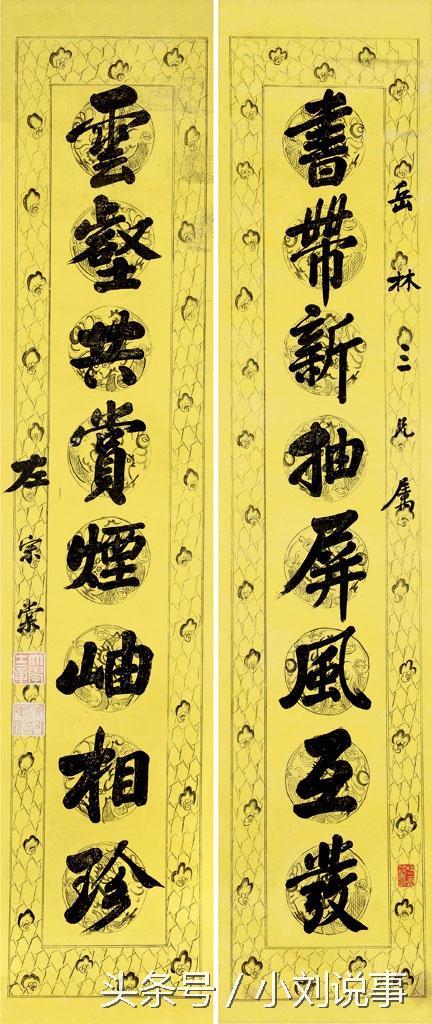 岳林三兄属
書帶新抽屏風互發
雲壑共賞煙岫相珍
左宗棠
头条号 / 小刘说事